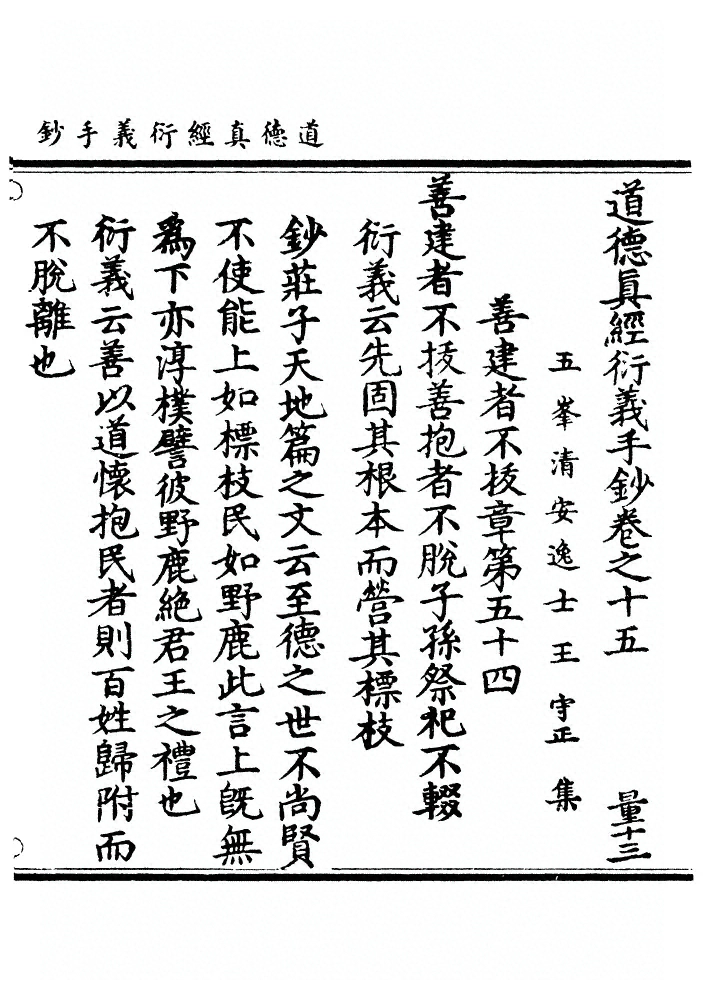 道德真經衍義手鈔
道德眞經衍義手鈔卷之十五 量十三
五峯清安逸士王守正集
善建者不拔章第五十四
善建者不拔善抱者不脫子孫祭祀不輟
衍義云先固其根本而營其標枝
鈔莊子天地篇之文云至德之世不尚賢
不使能上如標枝民如野鹿此言上旣無
爲下亦淳樸譬彼野鹿絶君王之禮也
衍義云善以道懷抱民者則百姓歸附而
不脫離也